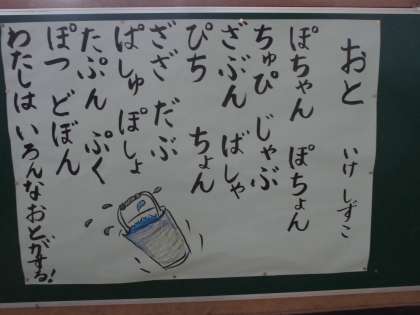 おと
いけ しずこ
ぽちゃん ぽちょん
ちゅぴ じゃぶ
ざぶん ばしゃ
ぴち ちょん
ざざ だぶ
ぱしゅ ぽしょ
たぷん ぷく
ぽつ どぼん
わたしは いろんなおとがする!